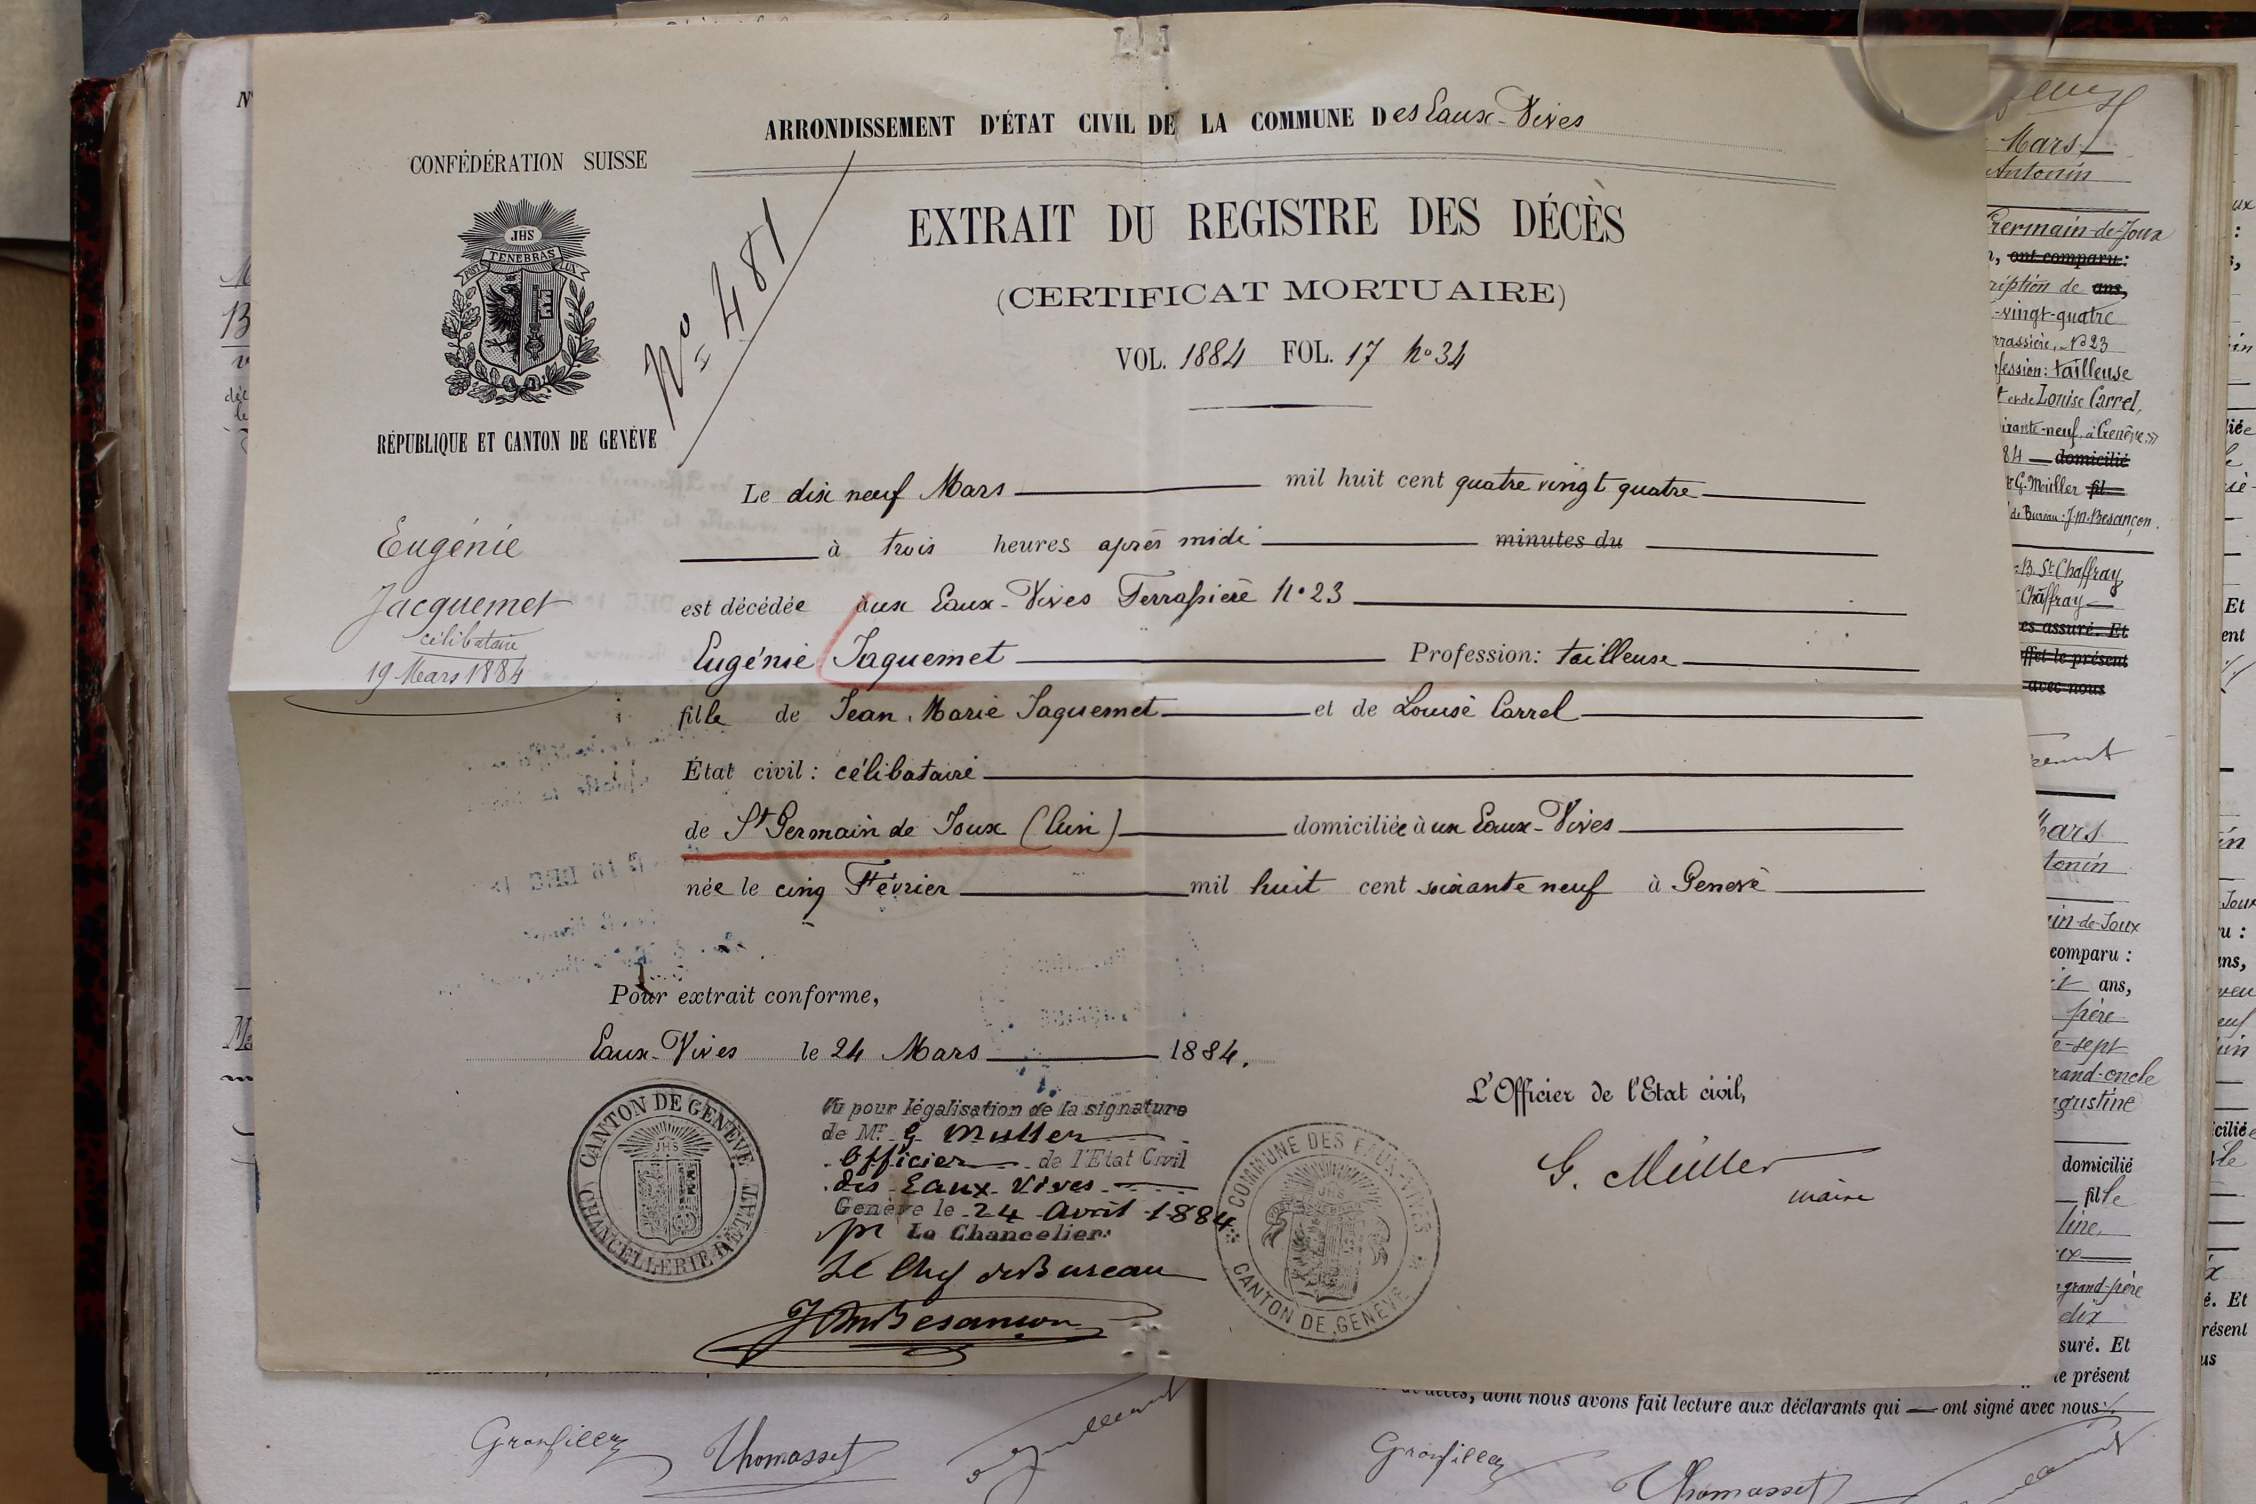 ARRONDISSEMENT D'ÉTAT CIVIL DE LA COMMUNE Des Eaux-Vives
CONFÉDÉRATION SUISSE
JHS
POST TENEBRAS LUX
RÉPUBLIQUE ET CANTON DE GENÈVE
No 481
EXTRAIT DU REGISTRE DES DÉCÈS
(CERTIFICAT MORTUAIRE)
VOL. 1884 FOL. 17 No 34
Eugénie
Jacquemet
célibataire
19 Mars 1884
Le dix neuf Mars mil huit cent quatre vingt quatre
à trois heures après midi minutes du
est décédée aux Eaux-Vives Terrassière No 23
Eugénie Jaquemet Profession: tailleuse
fille de Jean, Marie Jaquemet et de Louise Carrel
État civil : célibataire
de St Germain de Joux (Ain) domiciliée aux Eaux-Vives
née le cinq Février mil huit cent soixante neuf à Genève
Pour extrait conforme,
Eaux-Vives le 24 Mars 1884.
L'Officier de l'Etat civil,
G. Müller
maire
CANTON DE GENÈVE
CHANCELLERIE D'ÉTAT
JHS
Vu pour légalisation de la signature
de Mr. G. Muller
Officier de l'Etat Civil
des Eaux-Vives
Genève le 24 Avril 1884
pr Le Chancelier:
Le Chef de Bureau
JMBesançon
COMMUNE DES EAUX-VIVES
CANTON DE GENÈVE
Mars
Antonin
Germain-de-Joux
ont comparu:
ans,
-vingt-quatre
No 23
tailleuse
et de Louise Carrel,
à Genève»
84 domicilié
G. Müller fil
de Bureau: J.M. Besançon.
B. St Chaffray
Chaffray
assuré. Et
le présent
avec nous
Mars
-de-Joux
comparu :
ans,
père
-sept
grand-oncle
domicilié
fille
grand-père
dix
Et
présent
dont nous avons fait lecture aux déclarants qui ont signé avec nous
Thomasset
Thomasset